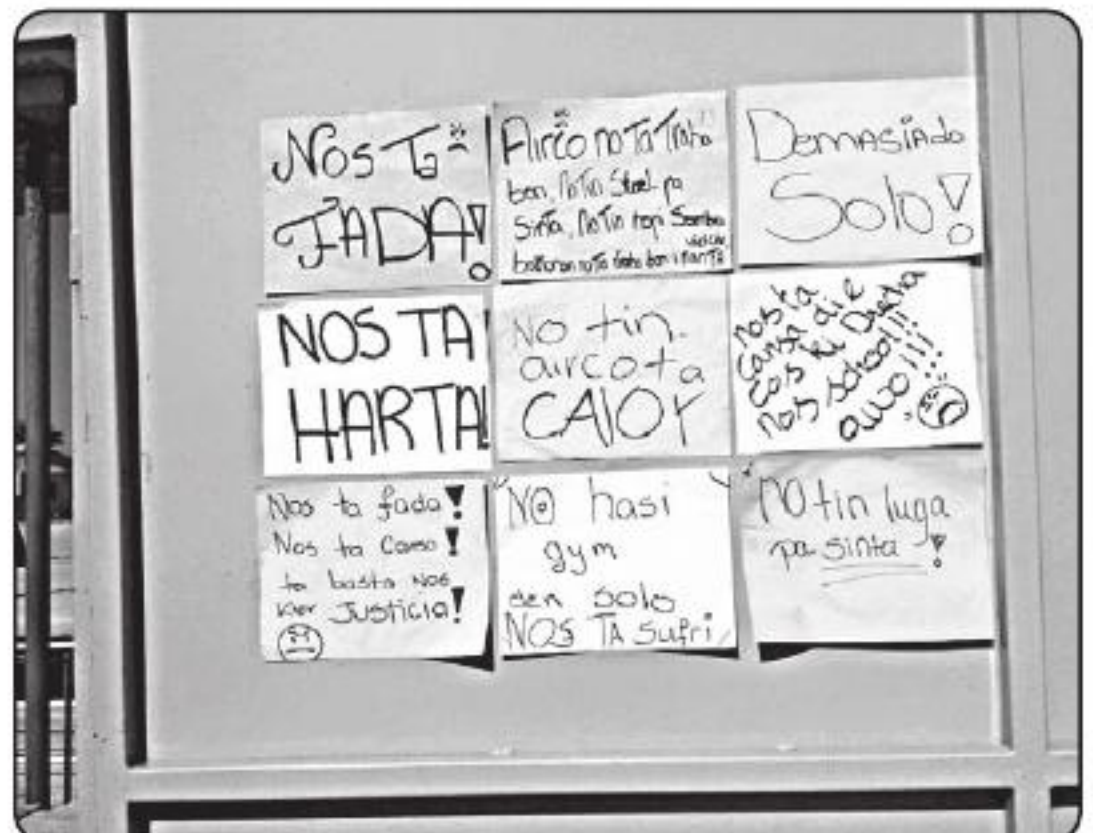 NOS Ta
FADA!
Airco no Ta Traha
bon, No Tin Stoel pa
Sinta, No Tin hopi Sombra
no Ta traha bon
DEMASIADO
Solo!
NOS TA
HARTA!
No tin
airco ta
CALOR
nos ta
cansa di e
cos ki
nos school!!!
awo!!!
Nos ta fada!
Nos ta Canso!
ta basta Nos
kier Justicia!
NO hasi
gym
den solo
NOS TA sufri
NO tin luga
pa sinta!